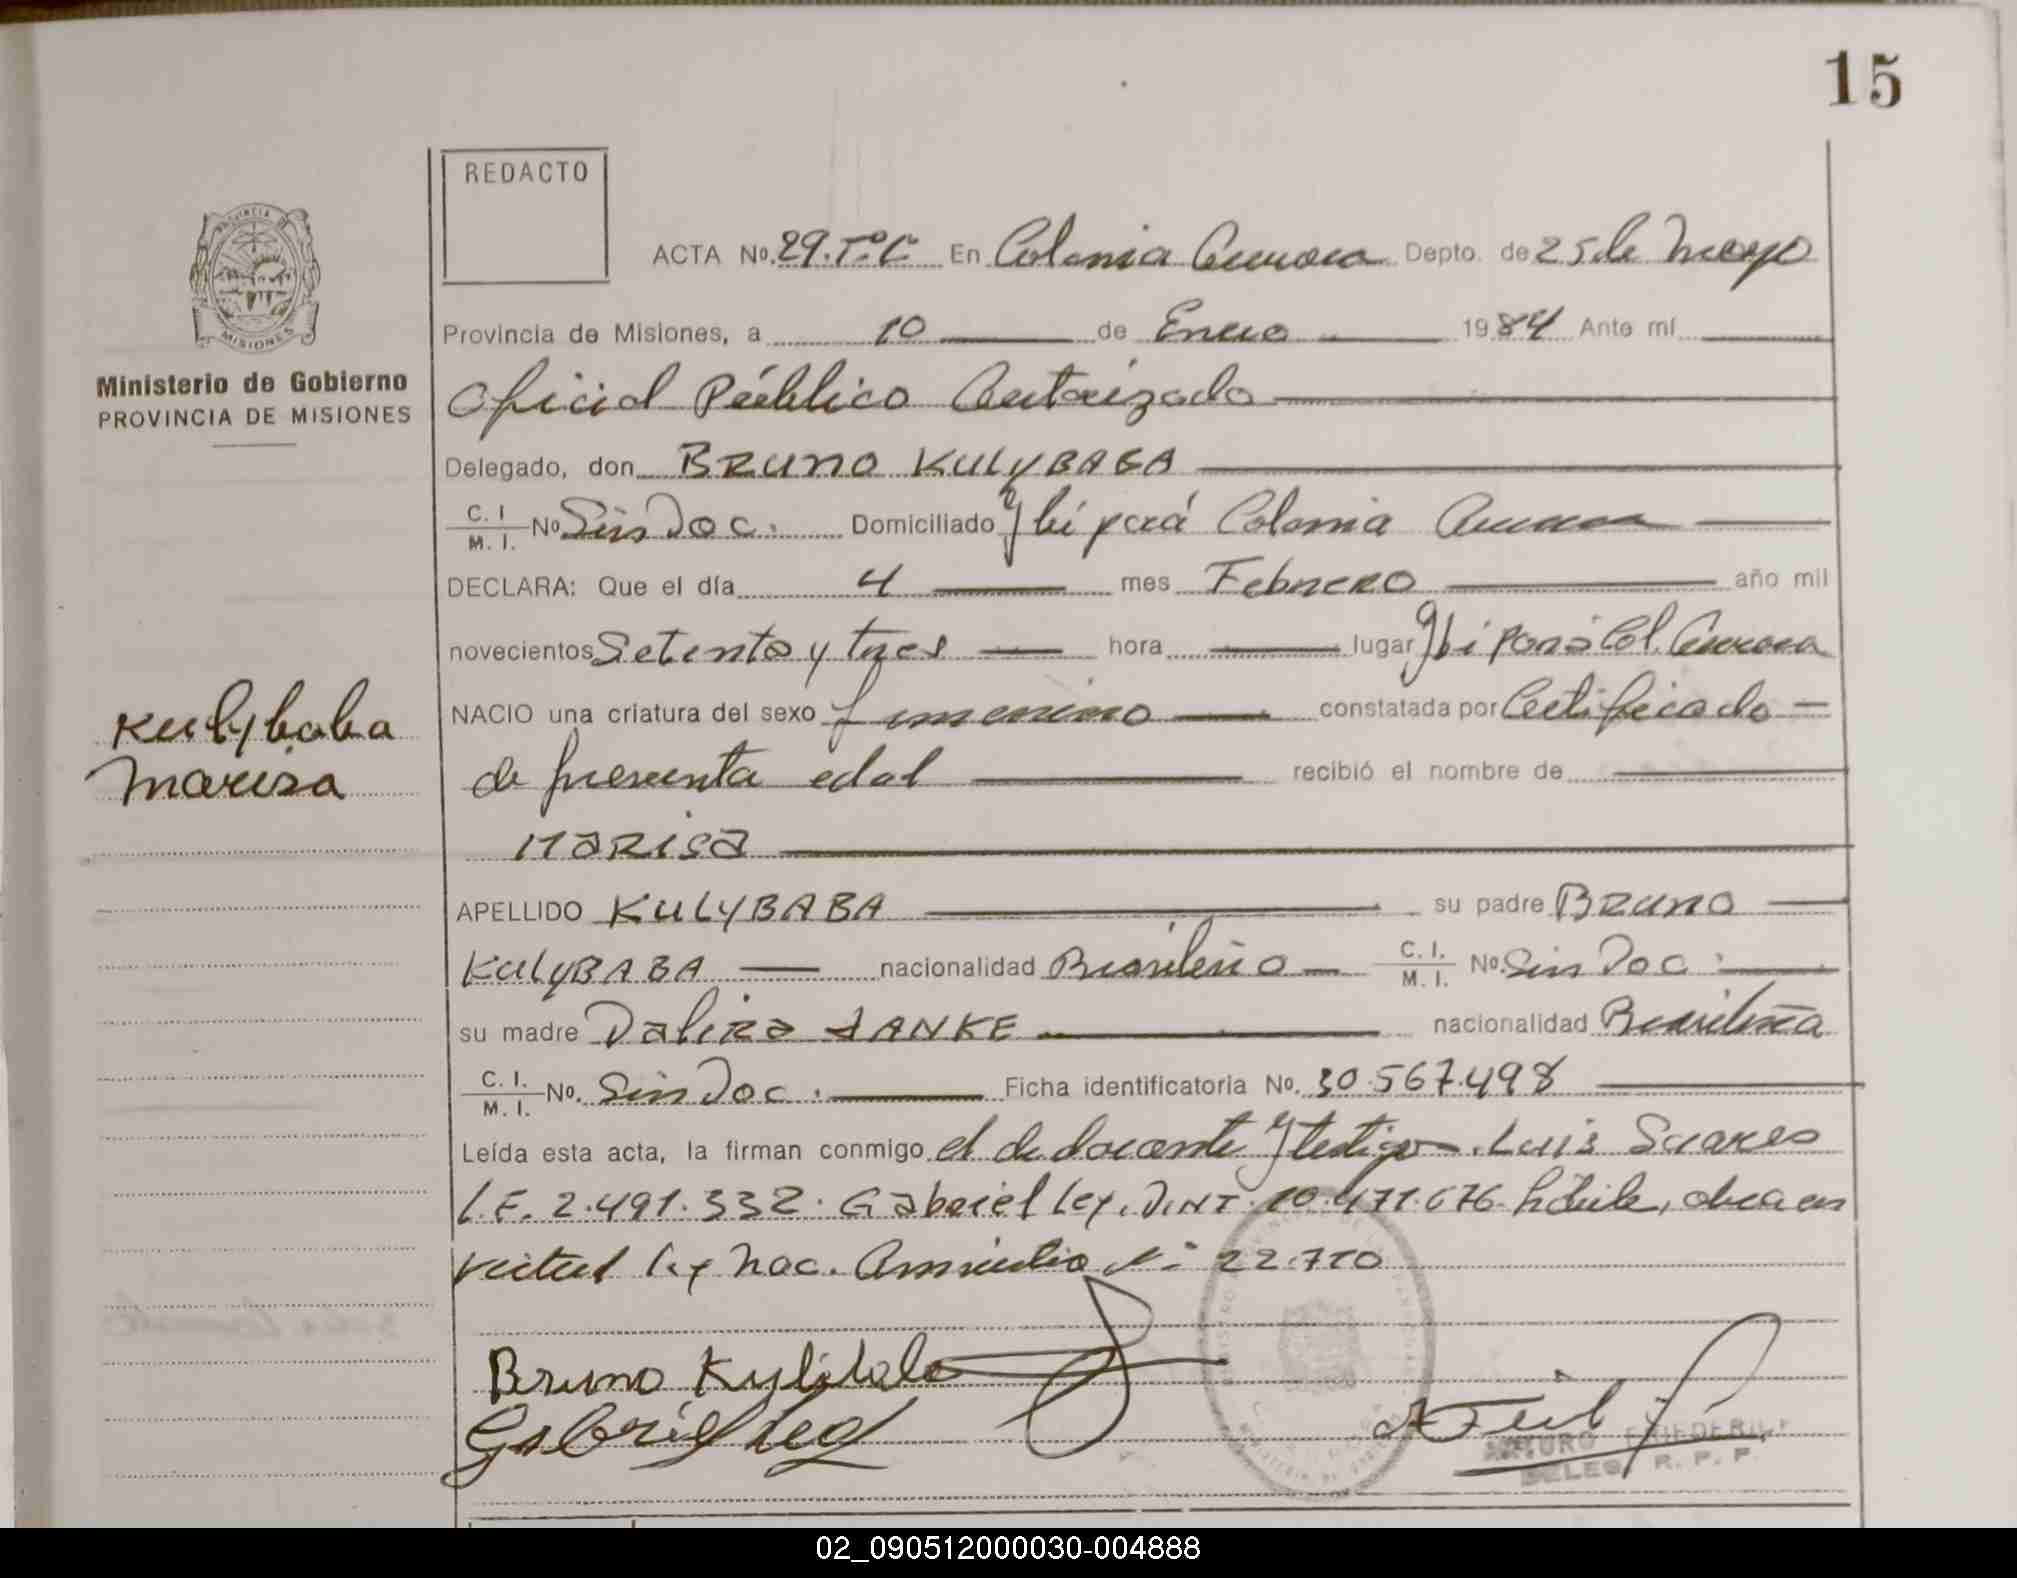 15
REDACTO
ACTA No. 29.Tº.C En Colonia Aurora Depto. de 25 de Mayo
Provincia de Misiones, a 10 de Enero 1984 Ante mí
Ministerio de Gobierno
PROVINCIA DE MISIONES
Oficial Público Autorizado
Delegado, don BRUNO KULYBABA
C. I. M. I. No Sin Doc. Domiciliado Ybi pará Colonia Aurora
DECLARA: Que el día 4 mes Febrero año mil
novecientos Setenta y tres hora lugar Ybi Pará Col. Aurora
NACIO una criatura del sexo femenino constatada por Certificado
Kulybaba
Marisa
de presunta edad recibió el nombre de
MARISA
APELLIDO KULYBABA su padre BRUNO
KULYBABA nacionalidad Brasileño C. I. M. I. No. Sin Doc.
su madre Dalira JANKE nacionalidad Brasileña
C. I. M. I. No. Sin Doc. Ficha identificatoria No. 30.567.498
Leída esta acta, la firman conmigo el declarante y testigo. Luis Suares
L.E. 2.491.332. Gabriel Ley. D.N.I. 10.471.676 hábile, obra en
virtud ley Nac. Amnistia Nº 22.710
Bruno Kylibaba
Gabriel Ley
ARTURO
DELEG. R. P. P.
02_090512000030-004888